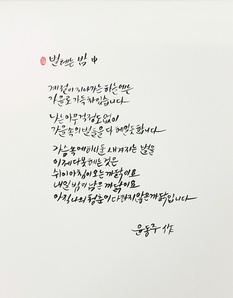 별헤는 밤 中
계절이 지나가는 하늘에는
가을로 가득 차있습니다
나는 아무 걱정도 없이
가을 속의 별들을 다 헤일듯합니다
가슴 속에 하나 둘 새겨지는 별을
이제 다 못 헤는 것은
쉬이 아침이 오는 까닭이요
내일 밤이 남은 까닭이요
아직 나의 청춘이 다하지 않은 까닭입니다
윤동주 作